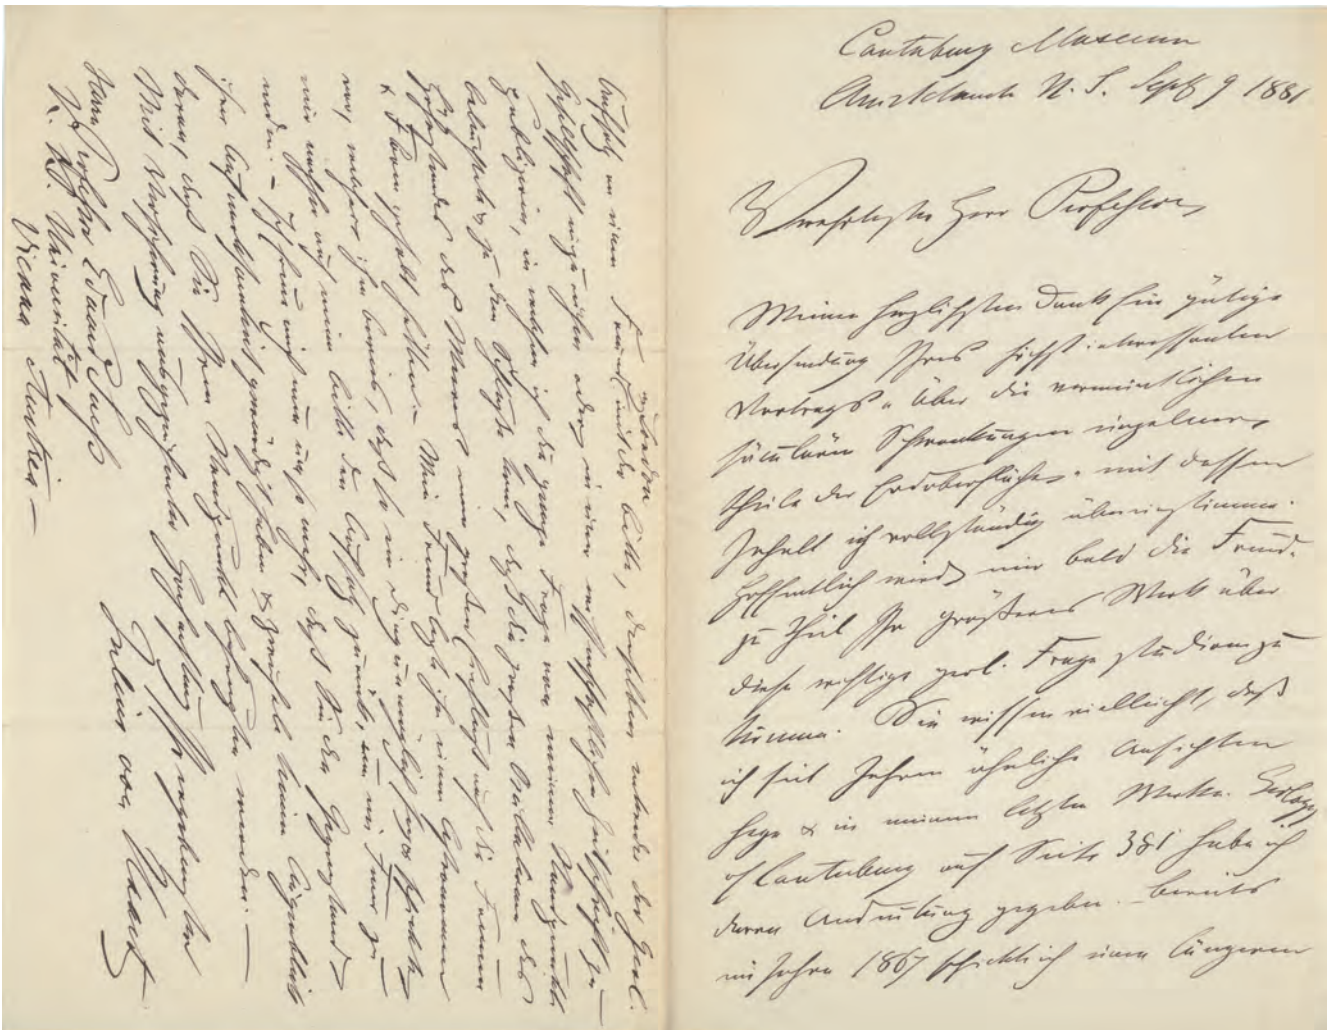 Canterbury Museum
Christchurch N. S. Sept 9 1881
Verehrtester Herr Professor,
Meinen herzlichsten Dank für gütige
Übersendung Ihres höchst interessanten
Vortrags „Über die vermeintlichen
säculären Schwankungen einzelner
Theile der Erdoberfläche“ mit dessen
Inhalt ich vollständig übereinstimme.
Hoffentlich wird mir bald die Freude
zu Theil Ihr größeres Werk über
diese wichtige geol. Frage studiren zu
können. Sie wissen vielleicht, daß
ich seit Jahren ähnliche Ansichten
hege & in meinem letzten Werke. Geology
of Canterbury auf Seite 381 habe ich
deren Andeutung gegeben. – Bereits
im Jahre 1867 schickte ich einen längeren
Aufsatz an einen Freund in London mit der Bitte, denselben entweder der Geol.
Gesellschaft einzureichen oder in einer wissenschaftlichen Zeitschrift zu
publiciren, in welchem ich die ganze Frage von meinem Standpunkte
beleuchtete & zu dem Schluße kam, daß die großen Oscillationen des
des Meeres einen großen Einfluß auf die Formen
& Faunen gehabt hätten. Mein Freund legte ihn einem
vor, welcher ihm bewies, daß so ein Ding unmöglich sey & schickte
mir nachher auf meine Bitte den Aufsatz zurück, um ein Feuer zu
machen. – Ich freue mich nun um so mehr, daß Sie den Gegenstand
Ihrer Aufmerksamkeit gewürdigt haben & zweifele keinen Augenblick
daran, daß Sie Ihren Standpunkt behaupten werden. –
Mit Versicherung ausgezeichneter Hochachtung Ihr ergebenster
Julius von Haast
Herrn Professor Eduard Suess
K. K. Universität
Vienna Austria –